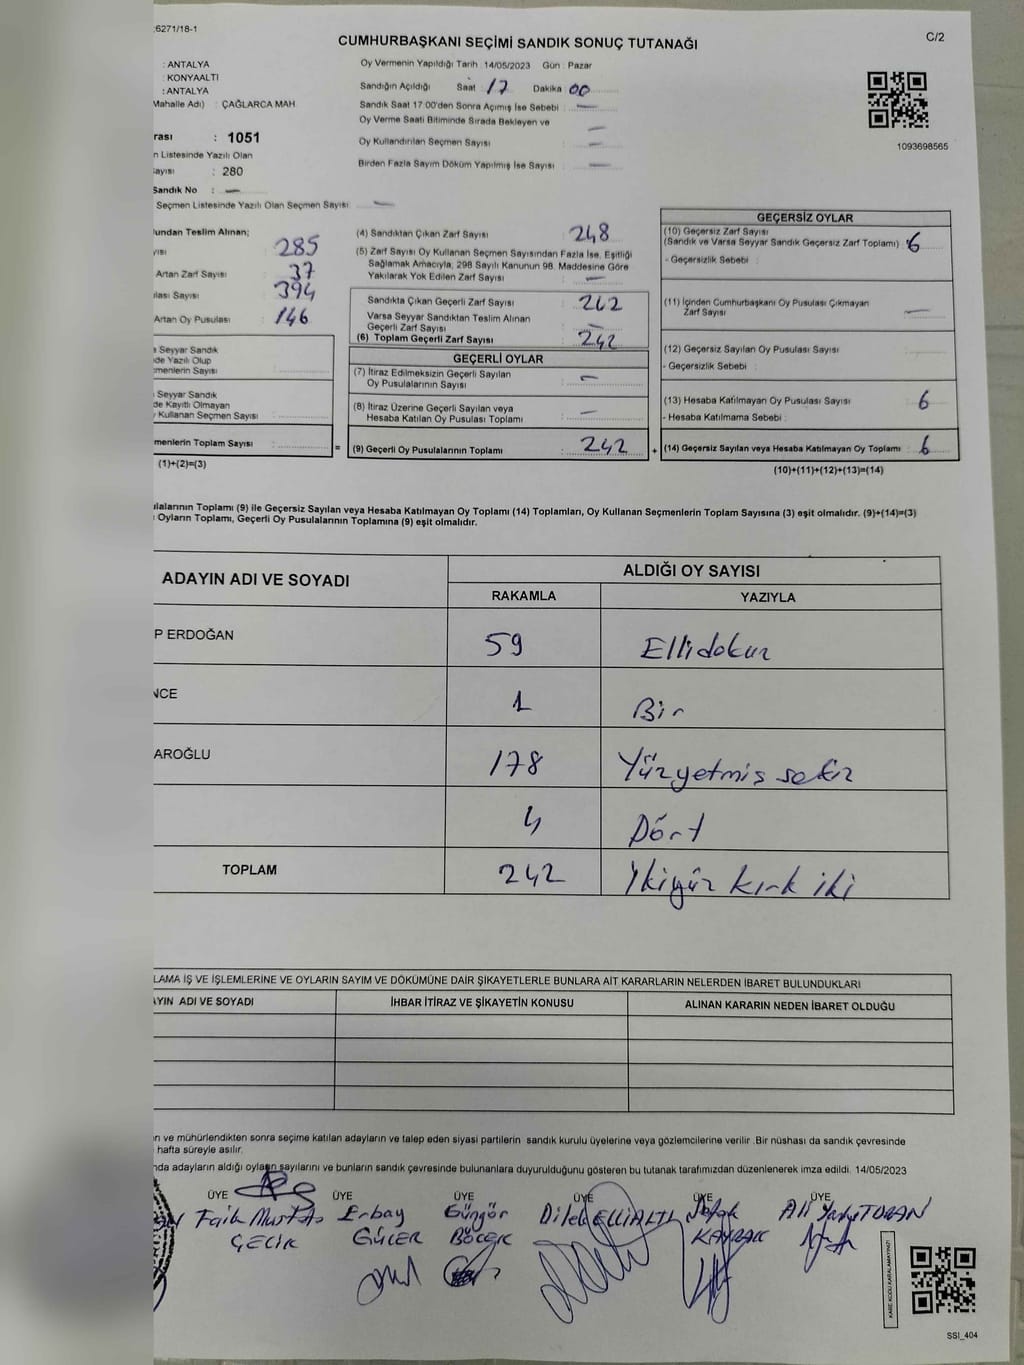 6271/18-1
C/2
CUMHURBAŞKANI SEÇİMİ SANDIK SONUÇ TUTANAĞI
: ANTALYA
: KONYAALTI
: ANTALYA
Mahalle Adı) : ÇAĞLARCA MAH.
Oy Vermenin Yapıldığı Tarih 14/05/2023 Gün : Pazar
Sandığın Açıldığı Saat 17 Dakika 00
Sandık Saat 17 00'den Sonra Açımış İse Sebebi : —
Oy Verme Saati Bitiminde Sırada Bekleyen ve —
Oy Kullandırılan Seçmen Sayısı : —
Birden Fazla Sayım Döküm Yapılmış İse Sayısı : —
1093698565
rası : 1051
n Listesinde Yazılı Olan
ayısı : 280
Sandık No : —
Seçmen Listesinde Yazılı Olan Seçmen Sayısı : —
undan Teslim Alınan;
yısı 285
Artan Zarf Sayısı 37
ılası Sayısı : 394
Artan Oy Pusulası : 146
(4) Sandıktan Çıkan Zarf Sayısı : 248
(5) Zarf Sayısı Oy Kullanan Seçmen Sayısından Fazla İse, Eşitliği
Sağlamak Amacıyla, 298 Sayılı Kanunun 98. Maddesine Göre
Yakılarak Yok Edilen Zarf Sayısı : —
Sandıkta Çıkan Geçerli Zarf Sayısı : 242
Varsa Seyyar Sandıktan Teslim Alınan
Geçerli Zarf Sayısı : —
(6) Toplam Geçerli Zarf Sayısı : 242
GEÇERLİ OYLAR
(7) İtiraz Edilmeksizin Geçerli Sayılan
Oy Pusulalarının Sayısı : —
(8) İtiraz Üzerine Geçerli Sayılan veya
Hesaba Katılan Oy Pusulası Toplamı : —
(9) Geçerli Oy Pusulalarının Toplamı : 242
GEÇERSİZ OYLAR
(10) Geçersiz Zarf Sayısı
(Sandık ve Varsa Seyyar Sandık Geçersiz Zarf Toplamı) : 6
- Geçersizlik Sebebi :
(11) İçinden Cumhurbaşkanı Oy Pusulası Çıkmayan
Zarf Sayısı : —
(12) Geçersiz Sayılan Oy Pusulası Sayısı :
- Geçersizlik Sebebi :
(13) Hesaba Katılmayan Oy Pusulası Sayısı : 6
- Hesaba Katılmama Sebebi :
+ (14) Geçersiz Sayılan veya Hesaba Katılmayan Oy Toplamı : 6
(10)+(11)+(12)+(13)=(14)
Seyyar Sandık
de Yazılı Olup
menlerin Sayısı :
Seyyar Sandık
de Kayıtlı Olmayan
Kullanan Seçmen Sayısı :
menlerin Toplam Sayısı : =
(1)+(2)=(3)
ulalarının Toplamı (9) ile Geçersiz Sayılan veya Hesaba Katılmayan Oy Toplamı (14) Toplamları, Oy Kullanan Seçmenlerin Toplam Sayısına (3) eşit olmalıdır. (9)+(14)=(3)
Oyların Toplamı, Geçerli Oy Pusulalarının Toplamına (9) eşit olmalıdır.
ADAYIN ADI VE SOYADI ALDIĞI OY SAYISI
RAKAMLA YAZIYLA
P ERDOĞAN 59 Ellidokuz
NCE 1 Bir
AROĞLU 178 Yüzyetmiş sekiz
4 Dört
TOPLAM 242 İkiyüz kırk iki
LAMA İŞ VE İŞLEMLERİNE VE OYLARIN SAYIM VE DÖKÜMÜNE DAİR ŞİKAYETLERLE BUNLARA AİT KARARLARIN NELERDEN İBARET BULUNDUKLARI
AYIN ADI VE SOYADI İHBAR İTİRAZ VE ŞİKAYETİN KONUSU ALINAN KARARIN NEDEN İBARET OLDUĞU
n ve mühürlendikten sonra seçime katılan adayların ve talep eden siyasi partilerin sandık kurulu üyelerine veya gözlemcilerine verilir .Bir nüshası da sandık çevresinde
hafta süreyle asılır.
nda adayların aldığı oyların sayılarını ve bunların sandık çevresinde bulunanlara duyurulduğunu gösteren bu tutanak tarafımızdan düzenlenerek imza edildi. 14/05/2023
ÜYE ÜYE ÜYE ÜYE ÜYE ÜYE
Faik Mustafa Erbay Güngör Dilek ELLİALTI ALİ TURAN
ÇELİK GÜLER BÖCEK KAYRAK
KARE KODU KARALAMAYINIZ!
SSI_404